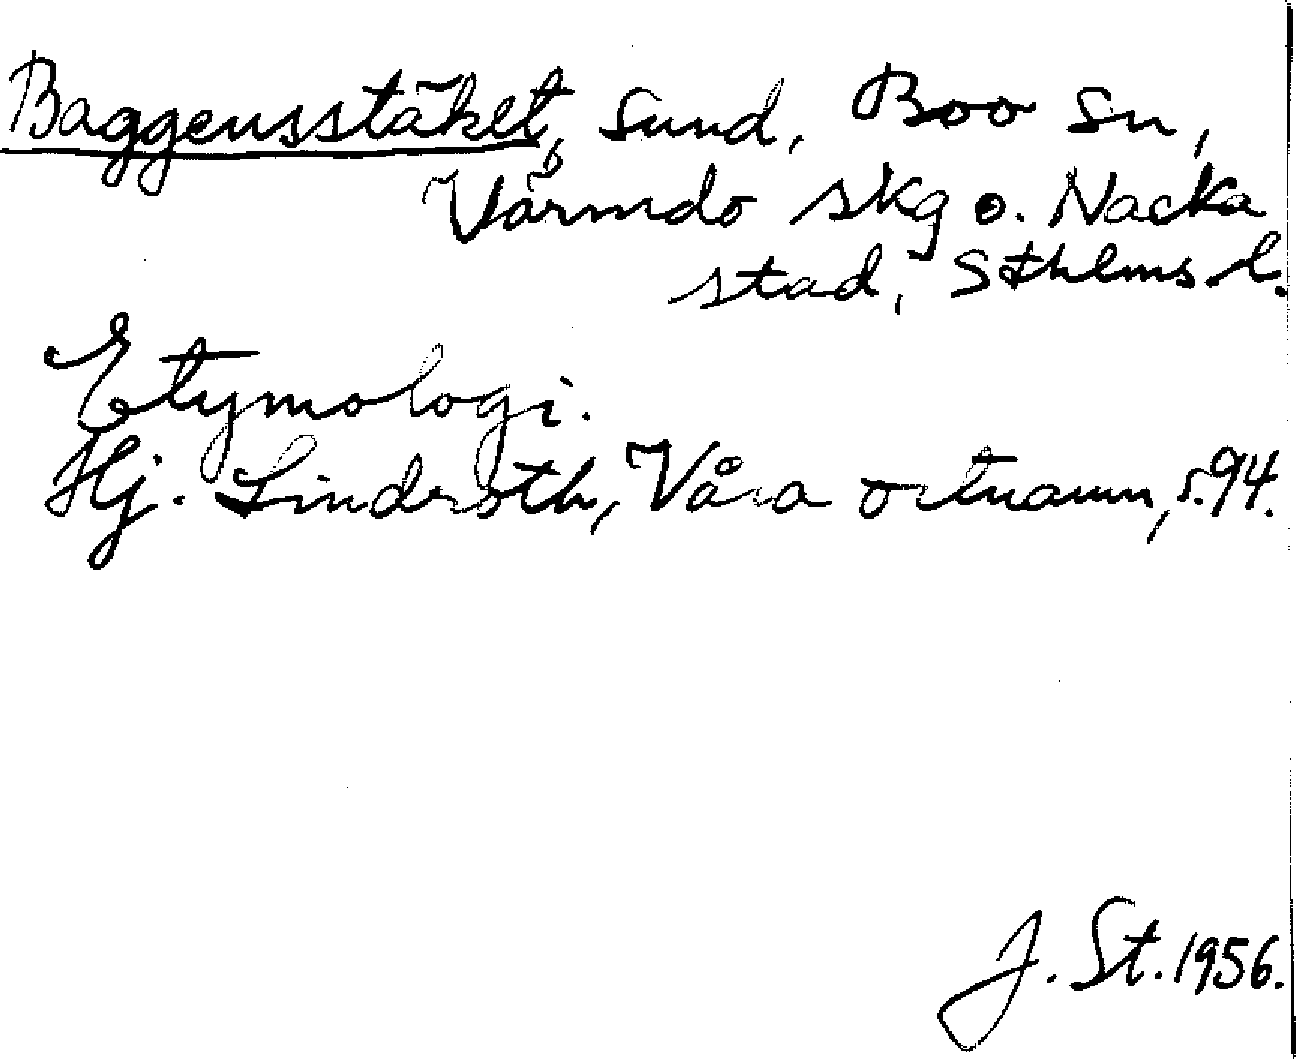 Baggensstäket, sund, Boo sn,
Värmdö skg o. Nacka
stad, Sthlms l.
Etymologi.
Hj. Lindroth, Våra ortnamn, s. 94.
J. St. 1956.